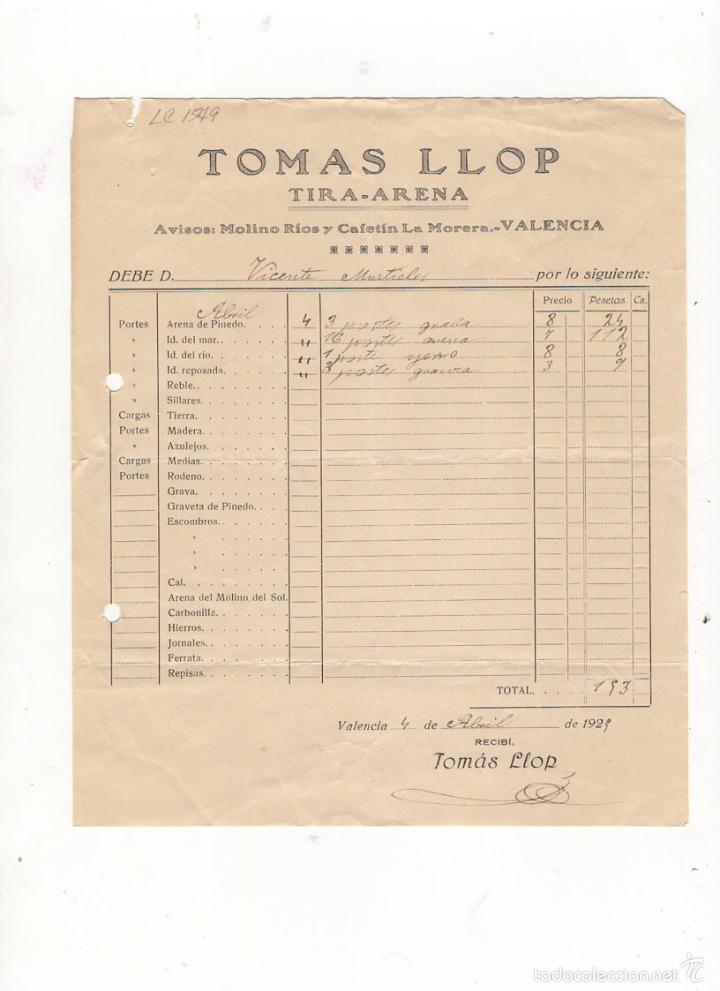 LC 1549
TOMAS LLOP
TIRA-ARENA
Avisos: Molino Ríos y Cafetín La Morera.-VALENCIA
DEBE D. Vicente por lo siguiente:
Precio Pesetas Cs.
Abril
Portes Arena de Pinedo. 4 3 portes graba 8 24
» Id. del mar. " 16 portes arena 7 112
» Id. del río. " 1 porte yeso 8 8
» Id. reposada. " 3 portes granza 3 9
» Reble.
» Sillares.
Cargas Tierra.
Portes Madera.
» Azulejos.
Cargas Medias.
Portes Rodeno.
Grava.
Graveta de Pinedo.
Escombros.
»
»
»
Cal.
Arena del Molino del Sol.
Carbonilla.
Hierros.
Jornales.
Ferrata.
Repisas.
TOTAL. 153
Valencia 4 de Abril de 1929
RECIBÍ,
Tomás Llop
todocoleccion.net